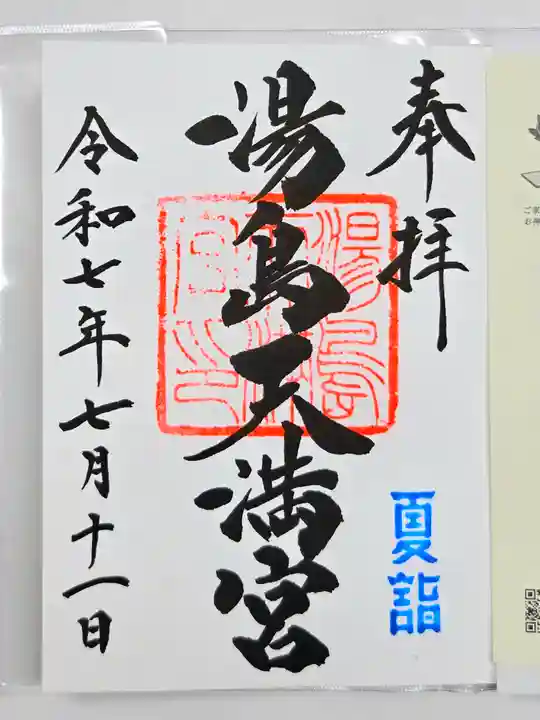 奉拝
夏詣
湯島天満宮
令和七年七月十一日